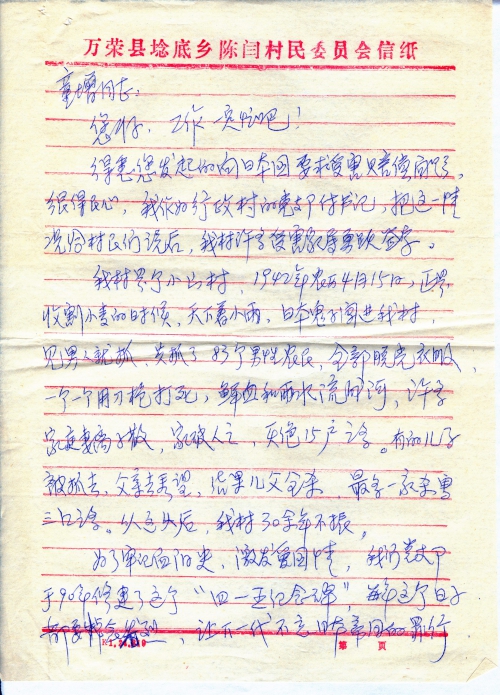 万荣县埝底乡陈间村民委员会信纸
童增同志:
您好,工作一定忙吧!
得悉您发起的向日本国要求受害赔偿
很得民心,我作为行政村的党支部书记,把这一情
况给村民们说后,我村许多受害家属踊跃签字。
我村是个小山村,1942年农历4月15日,正是
收割小麦的时候,天下着小雨,日本鬼子闯进我村,
见男人就抓,共抓了 男性农民,全部脱光衣服,
一个一个用刀枪打死,鲜血和雨水流成河,许多
家庭妻离子散,家破人亡,灭绝15户之多。有的儿子
被抓去,父亲去看望,结果儿父全杀,最多一家杀害
三口之多。从这以后,我村30余年不振。
为了牢记血泪史,激发爱国情,我们党支部
于90年修建了这个“四一五纪念碑”,每年这个日子
都要 ,让下一代不忘日本帝国的罪行
第 页